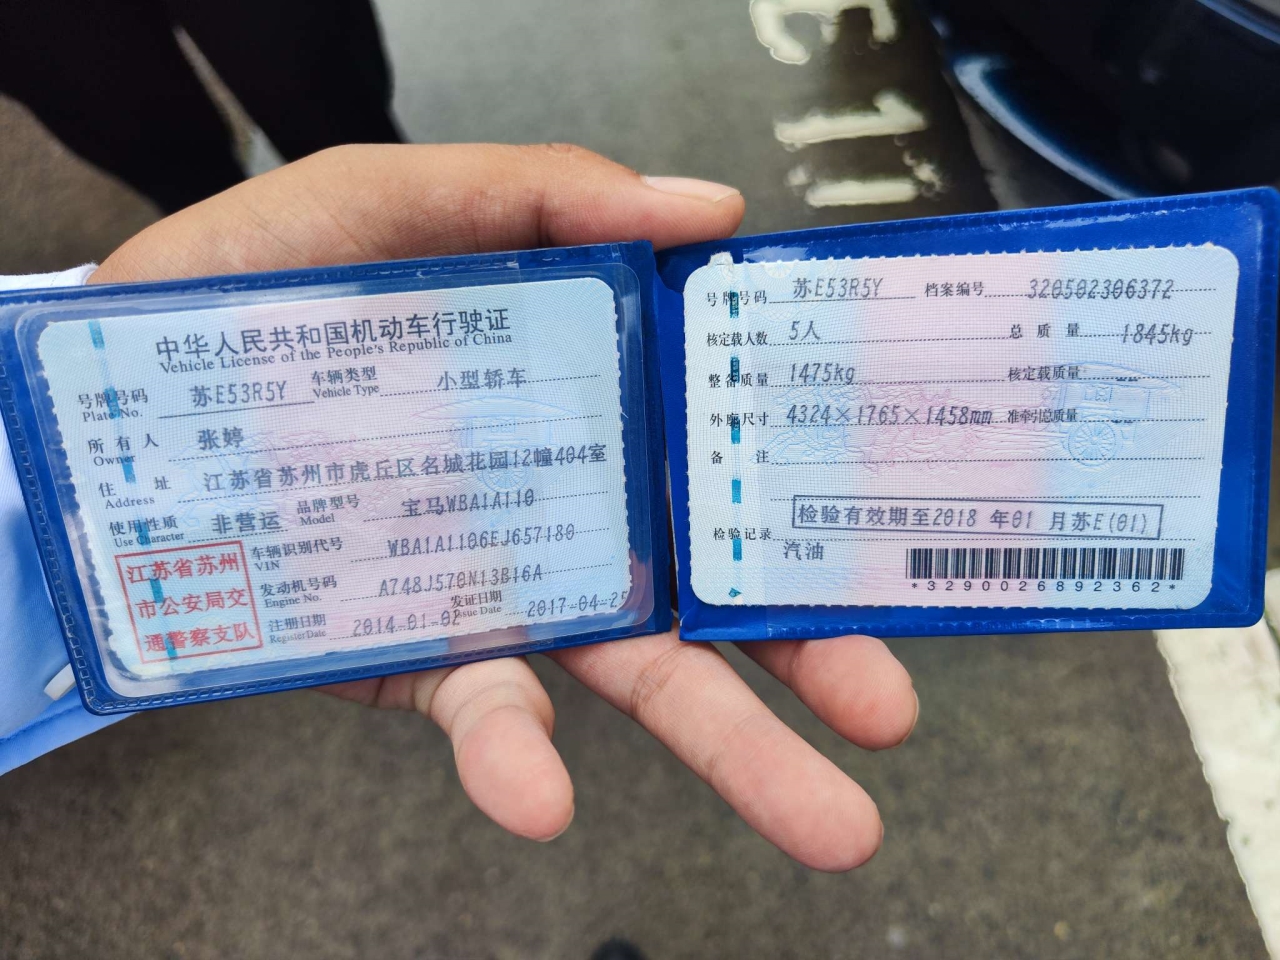 中华人民共和国机动车行驶证
Vehicle License of the People's Republic of China
号牌号码 苏E53R5Y 车辆类型 小型轿车
Plate No. Vehicle Type
所有人 张婷
Owner
住址 江苏省苏州市虎丘区名城花园12幢404室
Address
使用性质 非营运 品牌型号 宝马WBA1A110
Use Character Model
江苏省苏州
市公安局交
通警察支队
车辆识别代号 WBA1A1106EJ657180
VIN
发动机号码 A748J570N13B16A
Engine No.
注册日期 2014-01-02 发证日期 2017-04-25
Register Date Issue Date
号牌号码 苏E53R5Y 档案编号 320502306372
核定载人数 5人 总质量 1845kg
整备质量 1475kg 核定载质量 --
外廓尺寸 4324×1765×1458mm 准牵引总质量 --
备注
检验有效期至2018 年01 月苏E(01)
检验记录
汽油
*3290026892362*